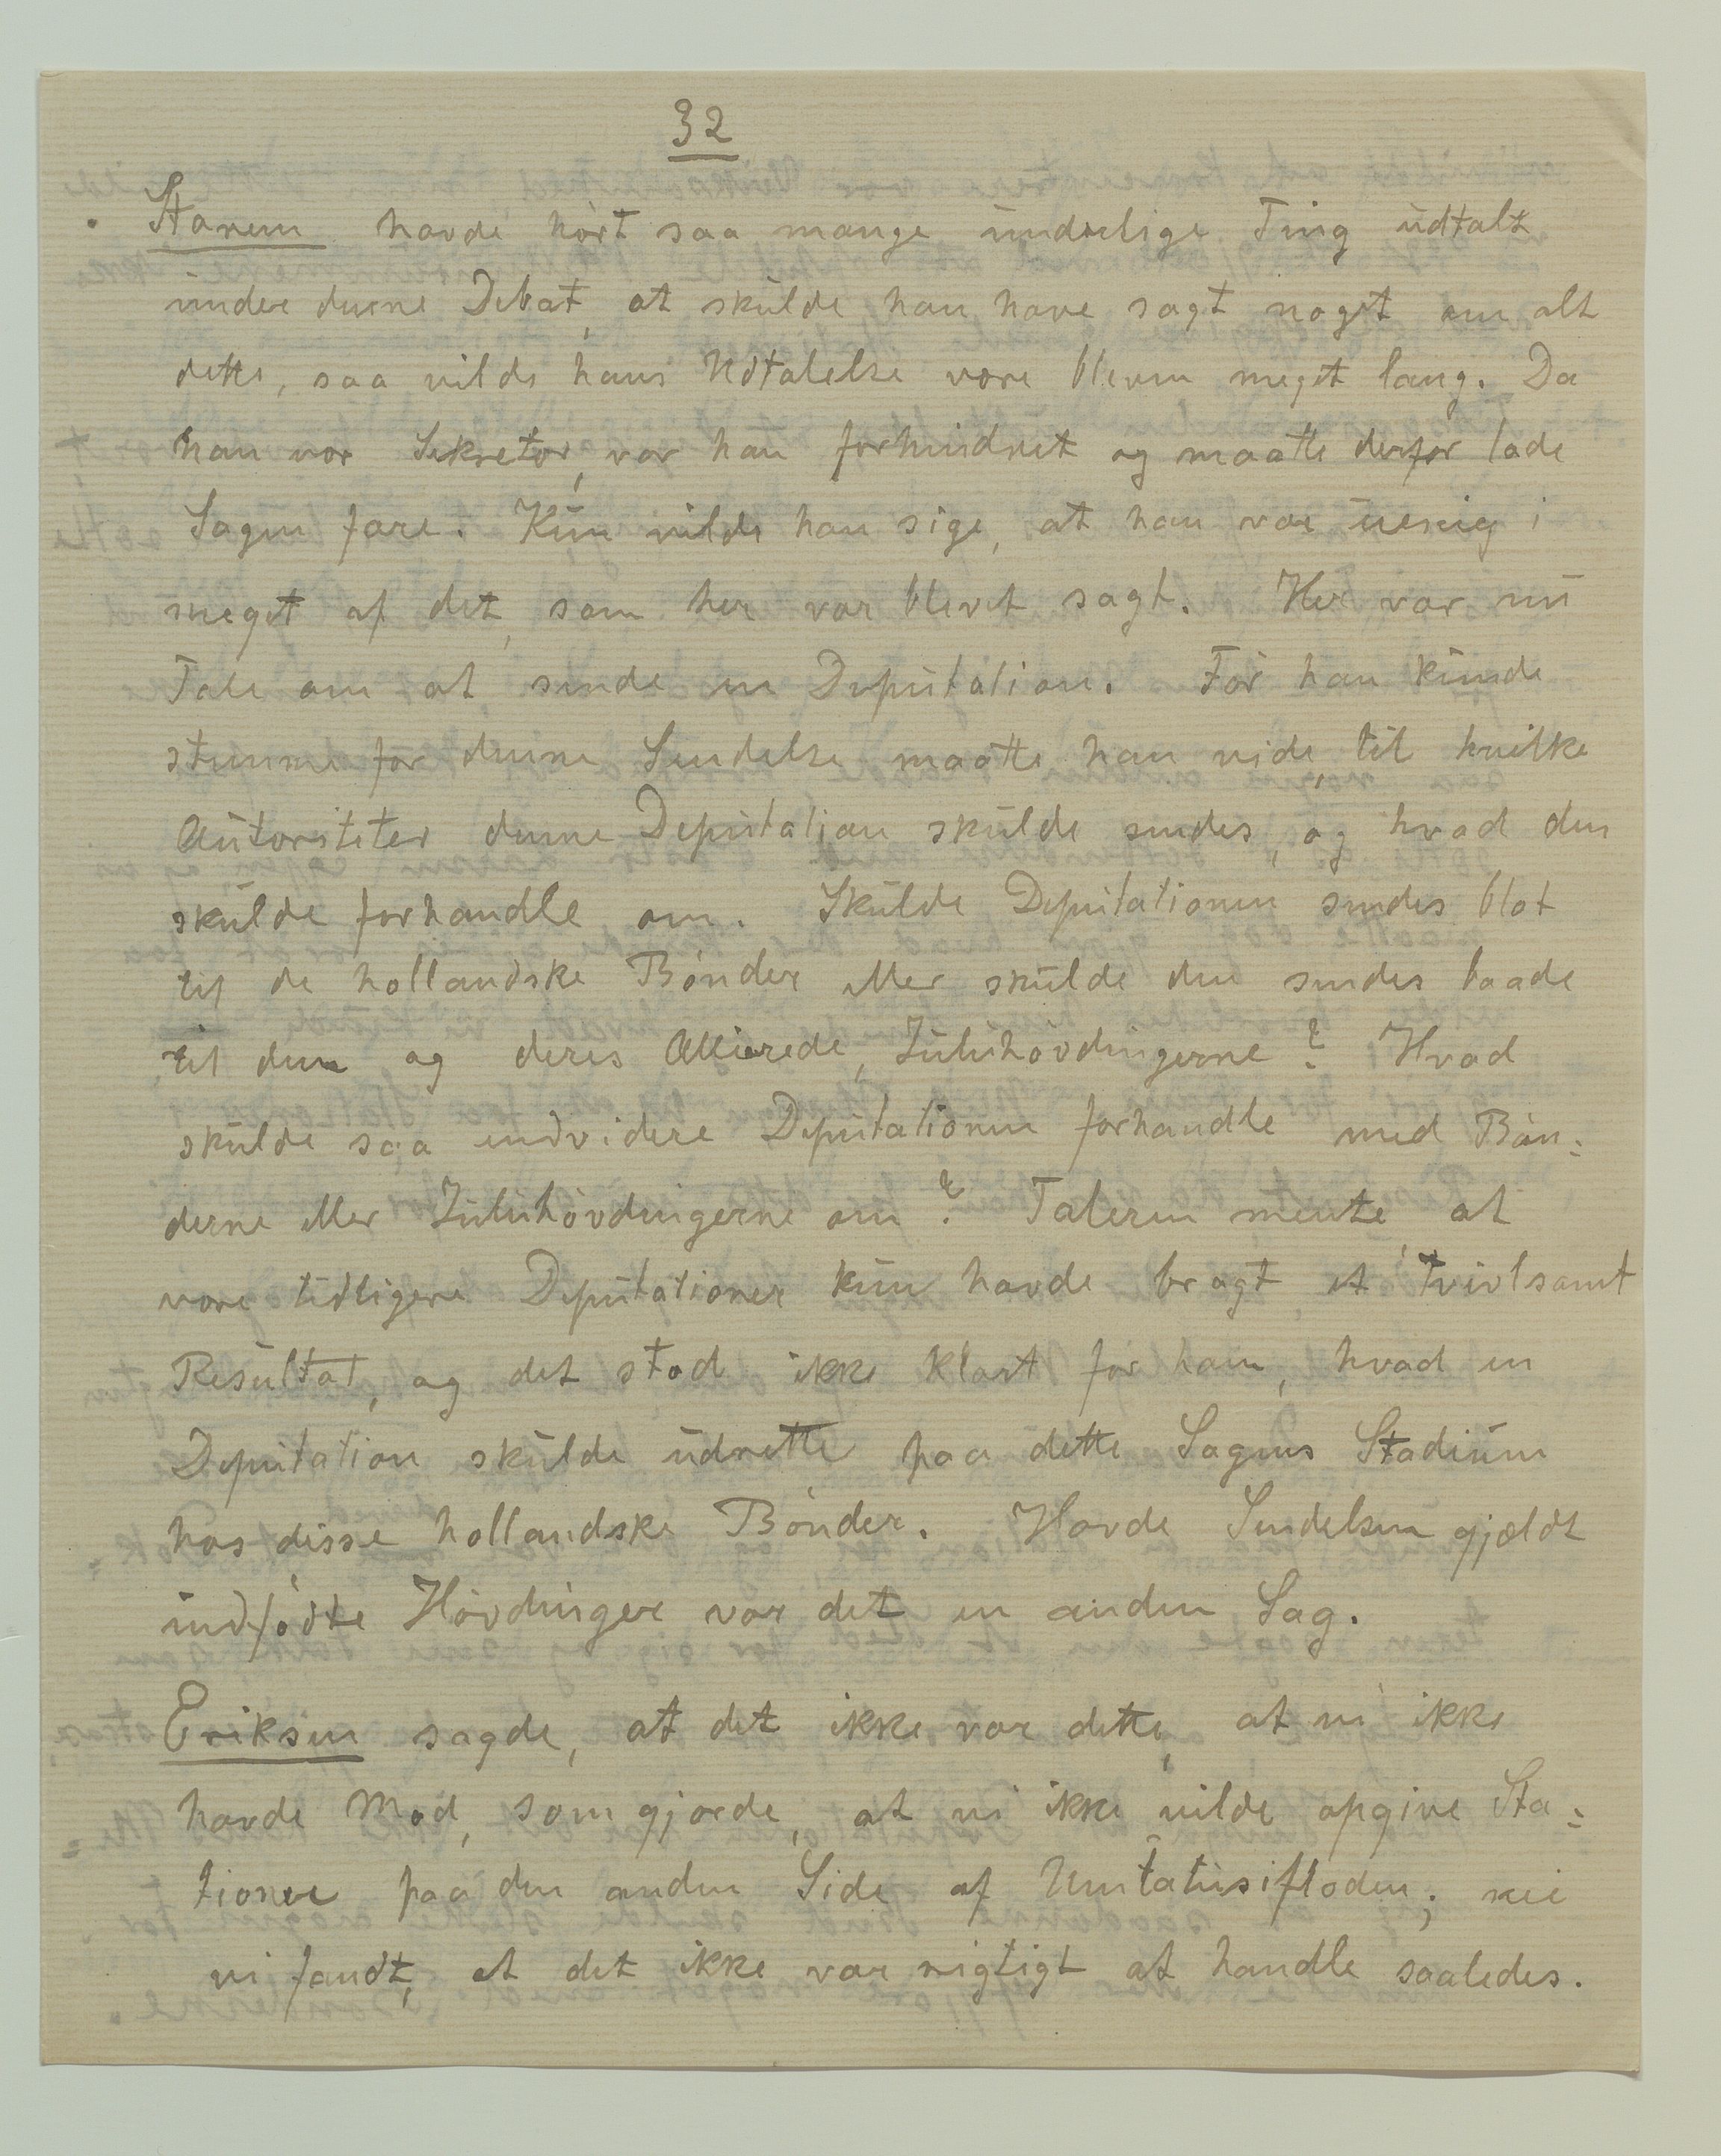 32
Stavem havde hørt saa mange underlige Ting udtalt
under denne Debat, at skulde han have sagt noget om alt
dette, saa vilde hans Udtalelse være bleven meget lang. Da
han var Sekretær, var han forhindret og maatte derfor lade
Sagen fare. Kun vilde han sige, at han var uenig i
meget af det, som her var blevet sagt. Her var nu
Tale om at sende en Deputation. Før han kunde
stemme for denne Sendelse maatte han vide, til hvilke
Autoriteter denne Deputation skulde sendes, og hvad den
skulde forhandle om. Skulde Deputationen sendes blot
til de hollandske Bønder eller skulde den sendes baade
til dem og deres Allierede, Zuluhøvdingerne? Hvad
skulde saa endvidere Deputationen forhandle med Bøn-
derne eller Zuluhøvdingerne om? Taleren mente, at
vore tidligere Deputationer kun havde bragt et tvivlsomt
Resultat, og det stod ikke klart for ham, hvad en
Deputation skulde udrette paa dette Sagens Stadium
hos disse hollandske Bønder. Havde Sendelsen gjældt
indfødte Høvdinger var det en anden Sag.
Eriksen sagde, at det ikke var dette, at vi ikke
havde Mod, som gjorde, at vi ikke vilde opgive Sta-
tioner paa den anden Side af Umfatusifloden; nei
vi fandt, at det ikke var rigtigt at handle saaledes.